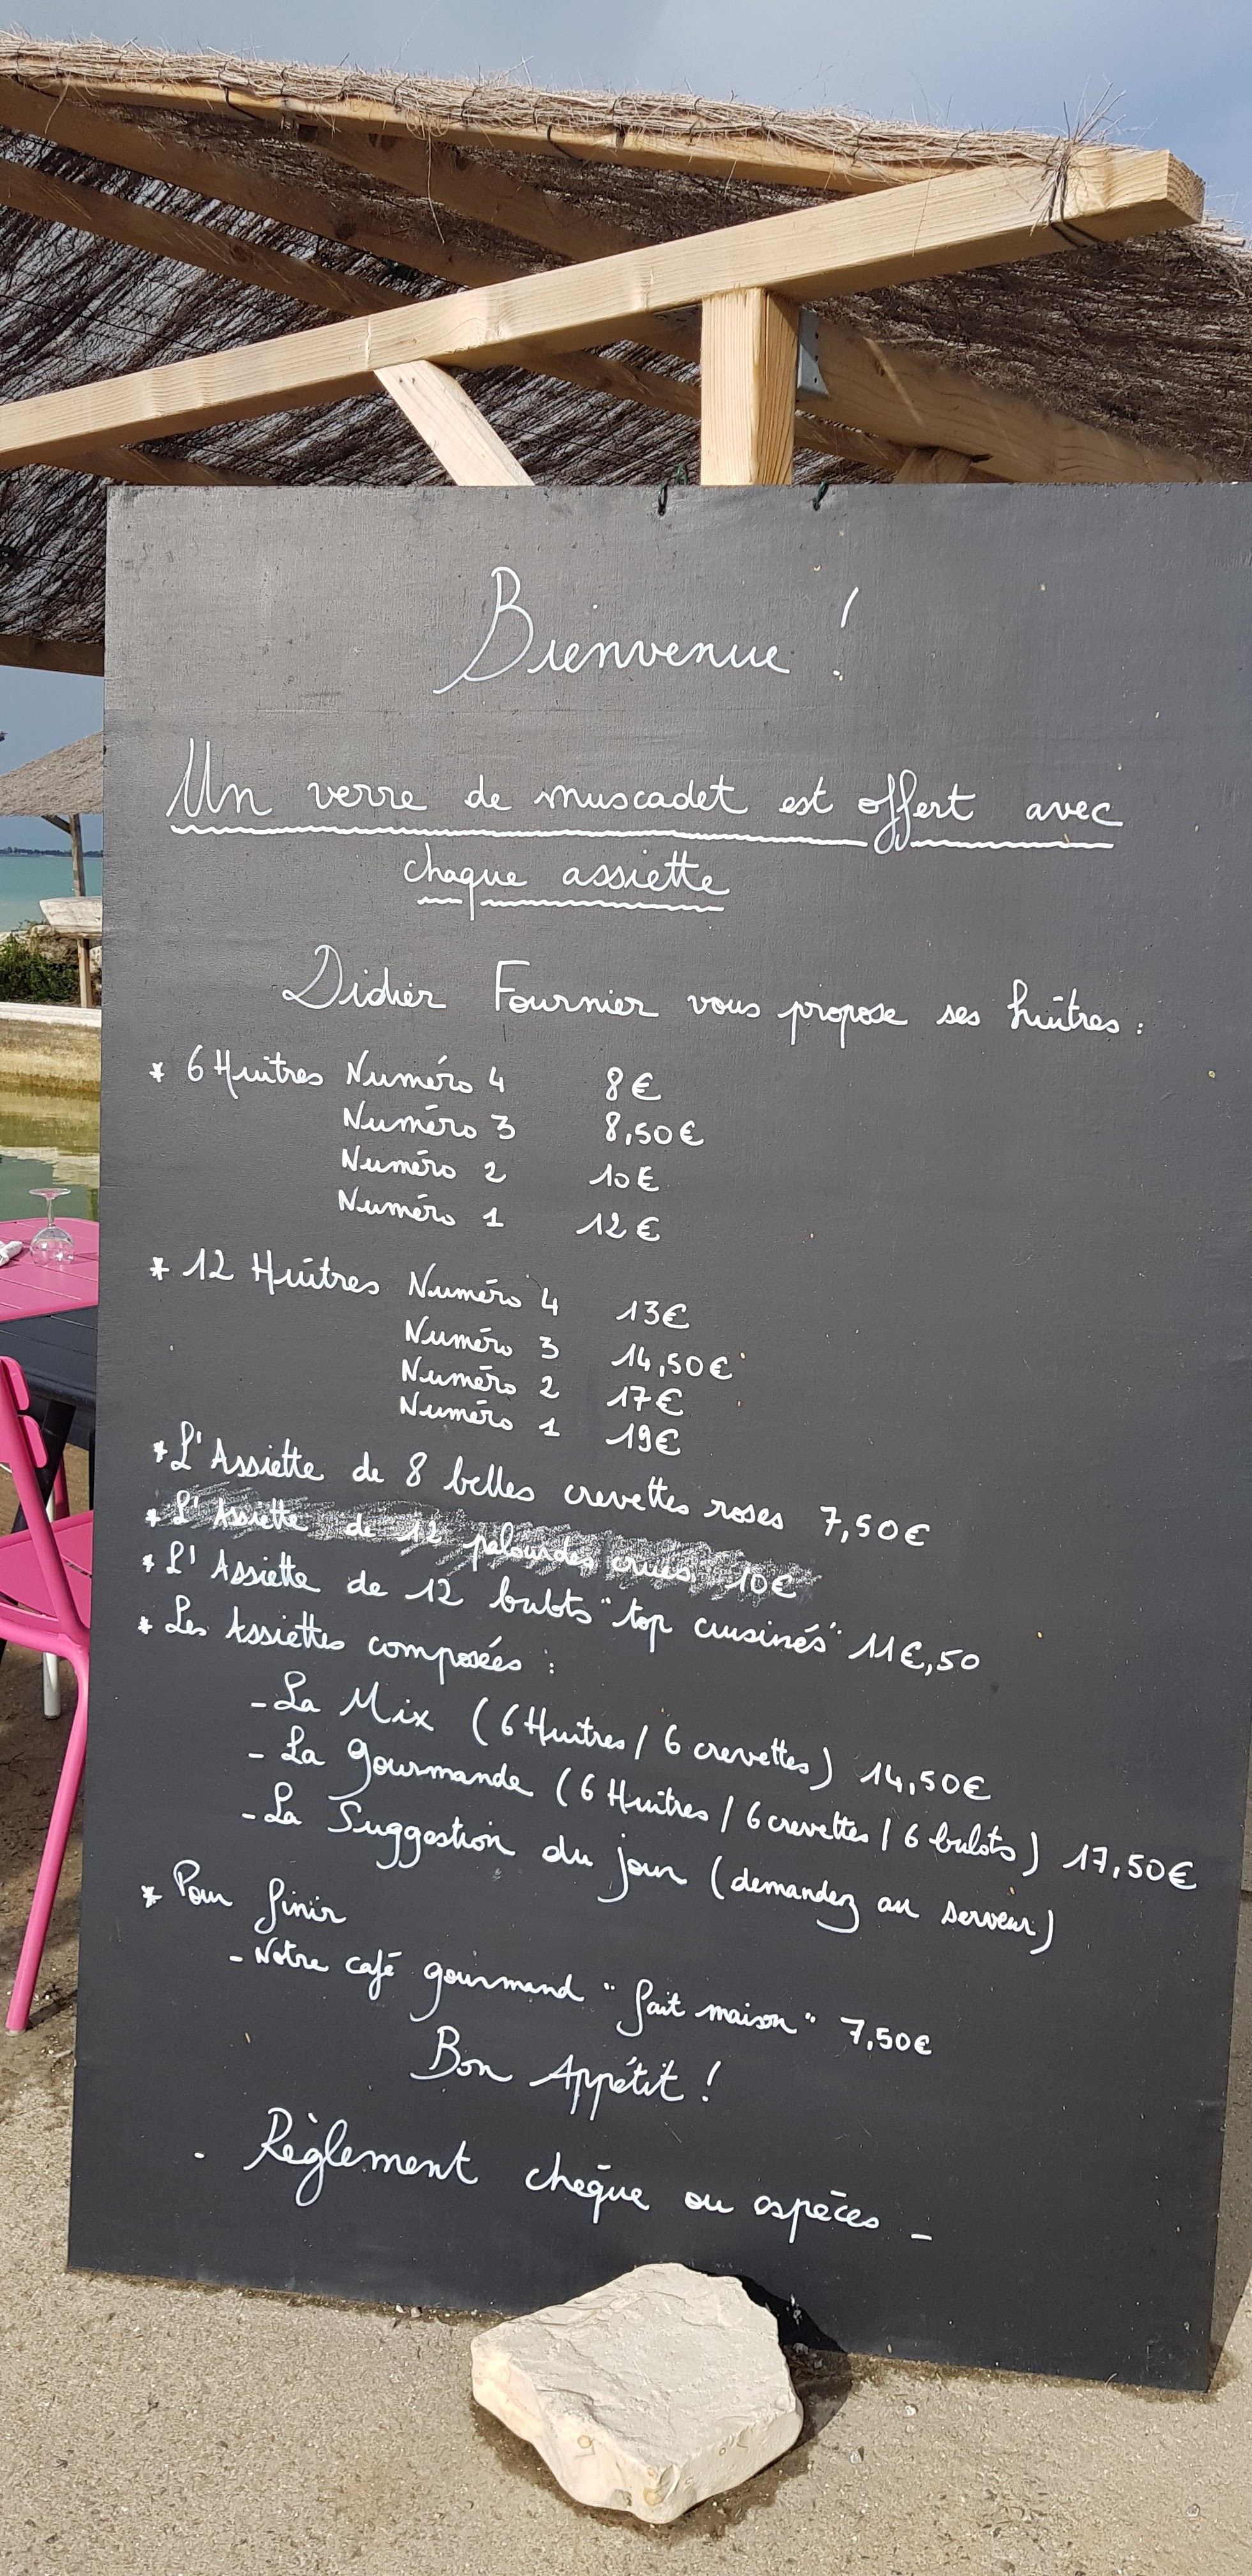 Bienvenue !
Un verre de muscadet est offert avec
chaque assiette
Didier Fournier vous propose ses huîtres :
* 6 Huîtres Numéro 4 8€
Numéro 3 8,50€
Numéro 2 10€
Numéro 1 12€
* 12 Huîtres Numéro 4 13€
Numéro 3 14,50€
Numéro 2 17€
Numéro 1 19€
* L'Assiette de 8 belles crevettes roses 7,50€
* L'Assiette de 12 palourdes crues 10€
* L'Assiette de 12 bulots "top cuisinés" 11€,50
* Les Assiettes composées :
- La Mix (6 Huîtres / 6 crevettes) 14,50€
- La Gourmande (6 Huîtres / 6 crevettes / 6 bulots) 17,50€
- La Suggestion du jour (demandez au serveur)
* Pour finir
- Notre café gourmand "fait maison" 7,50€
Bon Appétit !
- Règlement chèque ou espèces -